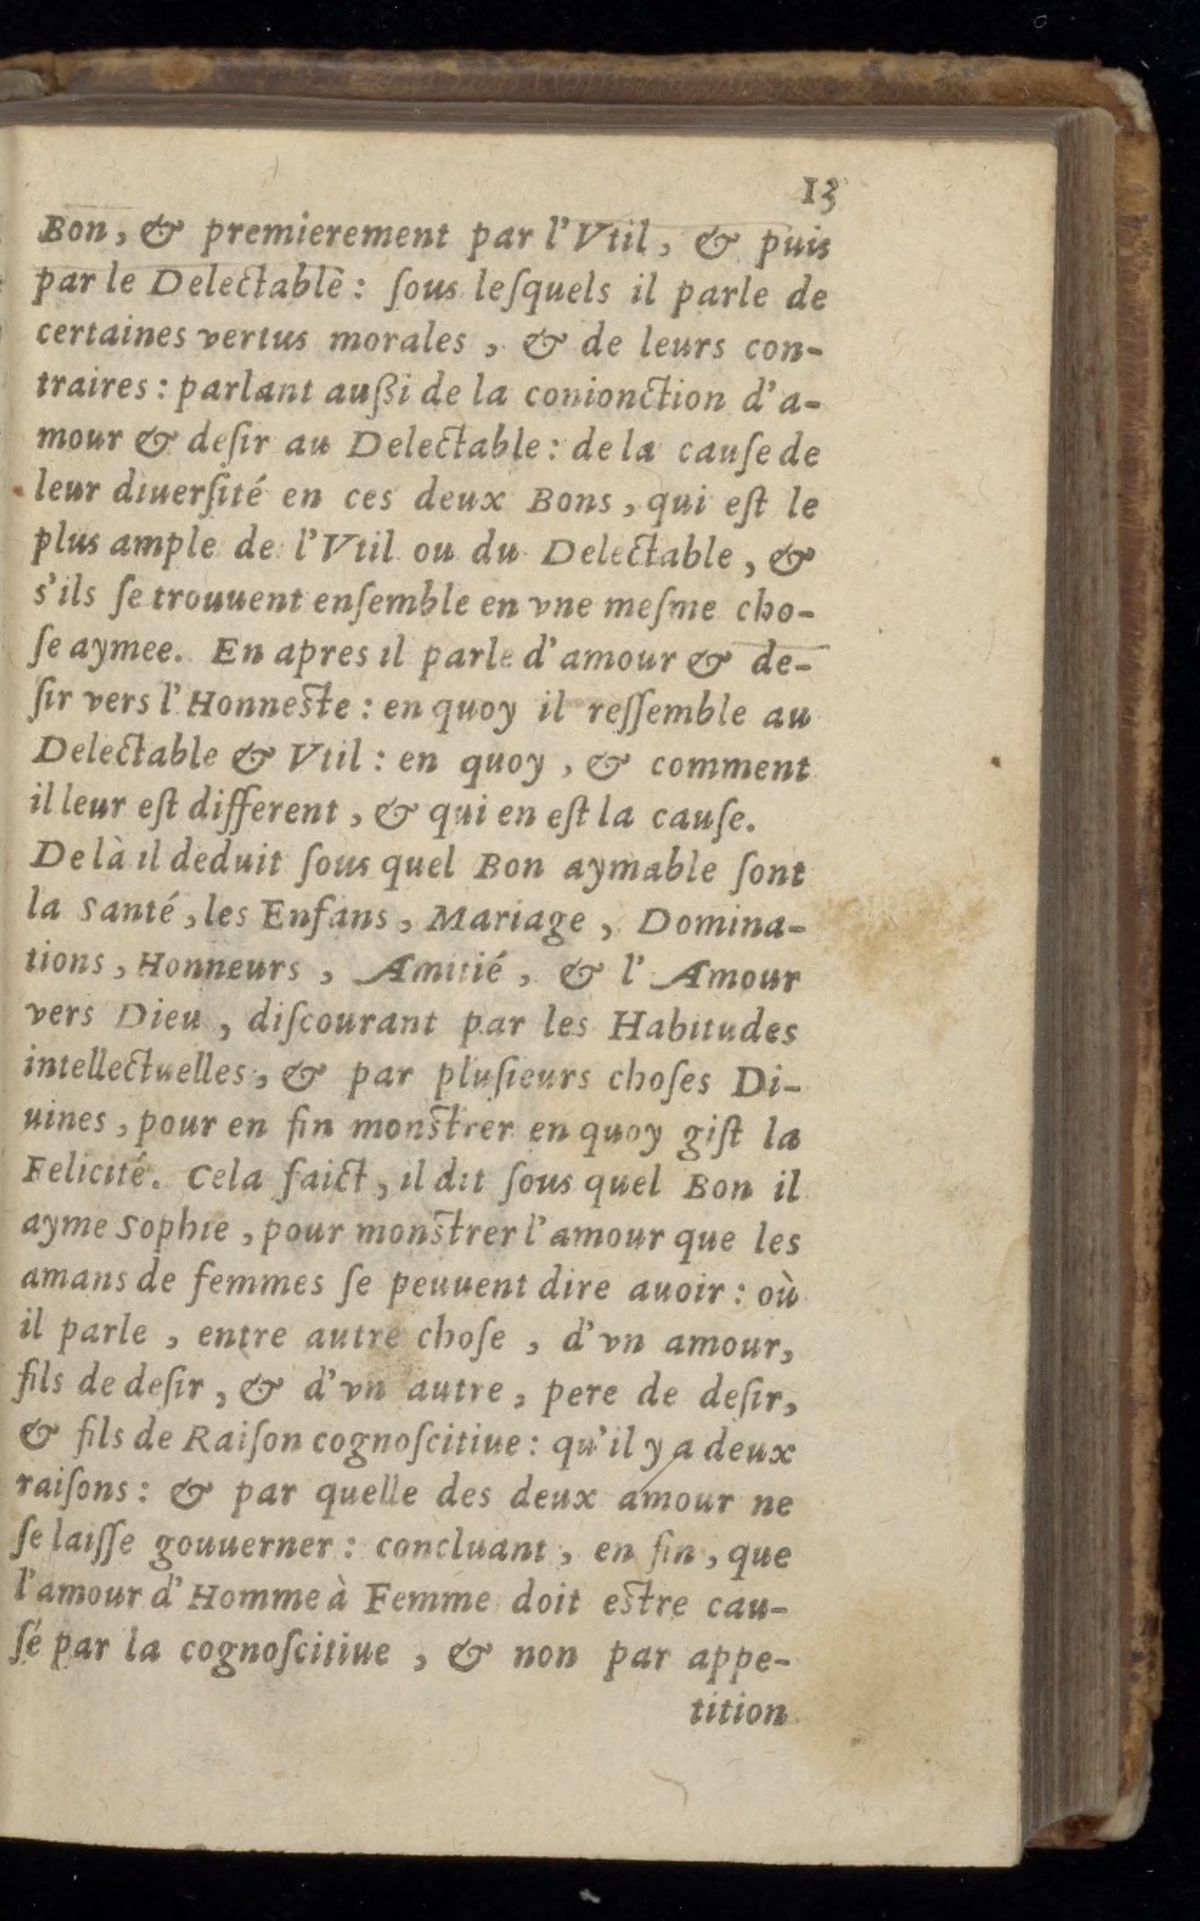 13
Bon, & premierement par l'Vtil, & puis
par le Delectable : ſous leſquels il parle de
certaines vertus morales, & de leurs con-
traires : parlant außi de la conionction d'a-
mour & deſir au Delectable : de la cauſe de
leur diuerſité en ces deux Bons, qui eſt le
plus ample de l'Vtil ou du Delectable, &
s'ils ſe trouuent enſemble en vne meſme cho-
ſe aymee. En apres il parle d'amour & de-
ſir vers l'Honneſte : en quoy il reſſemble au
Delectable & Vtil : en quoy, & comment
il leur eſt different, & qui en eſt la cauſe.
De là il deduit ſous quel Bon aymable ſont
la Santé, les Enfans, Mariage, Domina-
tions, Honneurs, Amitié, & l'Amour
vers Dieu, diſcourant par les Habitudes
intellectuelles, & par pluſieurs choſes Di-
uines, pour en fin monſtrer en quoy giſt la
Felicité. Cela faict, il dit ſous quel Bon il
ayme Sophie, pour monſtrer l'amour que les
amans de femmes ſe peuuent dire auoir : où
il parle, entre autre choſe, d'vn amour,
fils de deſir, & d'vn autre, pere de deſir,
& fils de Raiſon cognoſcitiue : qu'il y a deux
raiſons : & par quelle des deux amour ne
ſe laiſſe gouuerner : concluant, en fin, que
l'amour d'Homme à Femme doit eſtre cau-
ſé par la cognoſcitiue, & non par appe-
tition